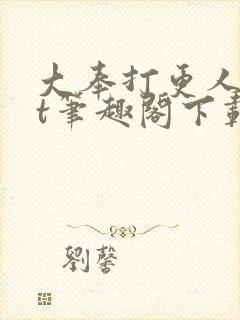 大奉打更人
t筆趣閣下載
劉馨